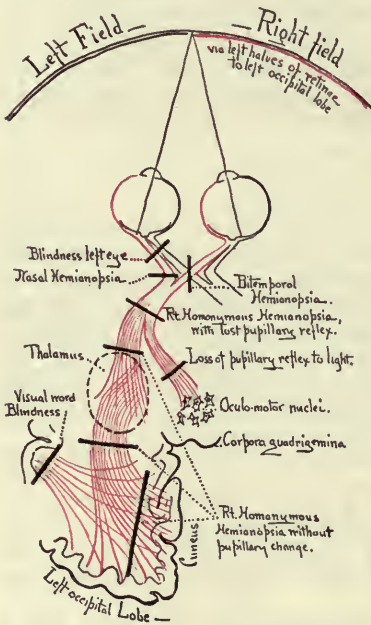 Left Field
Right field
via left halves of retinae
to left occipital lobe
Blindness left eye
Nasal Hemianopsia
Bitemporal
Hemianopsia.
Rt. Homonymous Hemianopsia,
with lost pupillary reflex.
Thalamus
Loss of pupillary reflex to light.
Visual word
Blindness
Oculo-motor nuclei.
Corpora quadrigemina
Rt. Homonymous
Hemianopsia without
pupillary change.
Cuneus
Left occipital Lobe